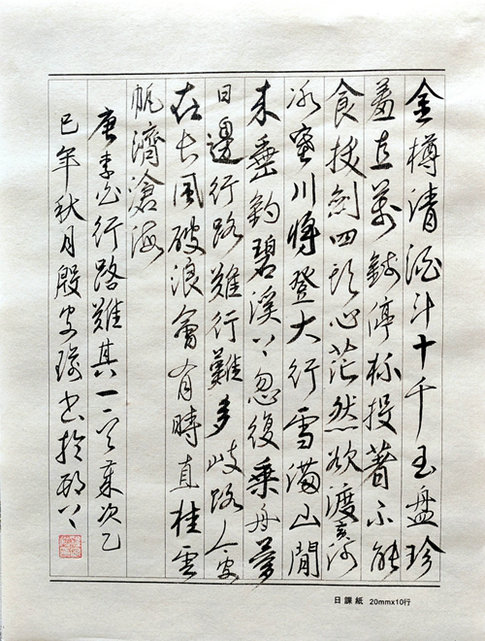 金樽清酒斗十千玉盤珍
羞直萬錢停杯投箸不能
食拔劍四顧心茫然欲渡黃河
冰塞川將登大行雪滿山閒
来垂釣碧溪上忽復乘舟夢
日邊行路難行難多岐路今安
在長風破浪會有時直挂雲
帆濟滄海
唐李白行路難其一歲次乙
巳年秋月殷書於
日課紙 20mmx10行